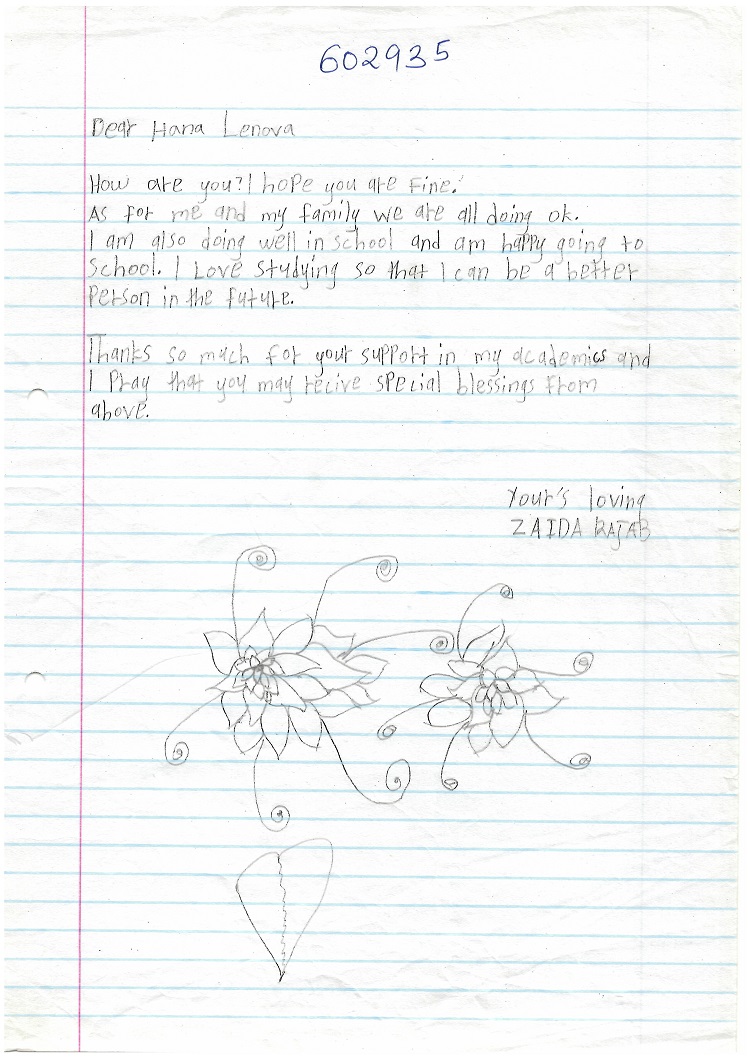 602935
Dear Hana Lenova
How are you? I hope you are Fine.
As for me and my family we are all doing ok.
I am also doing well in school and am happy going to
School. I Love studying so that I can be a better
Person in the future.
Thanks so much for your support in my academics and
I Pray that you may recive special blessings from
above.
Your's loving
ZAIDA RAJAB